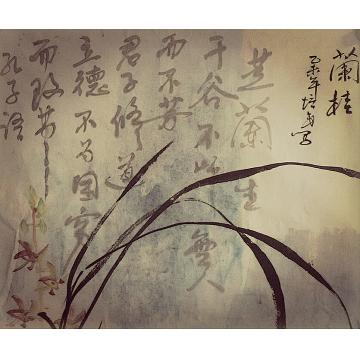 蘭桂
乙未年
芝蘭生
于谷不以無人
而不芳
君子修道
立德不为困窮
而改节
孔子語